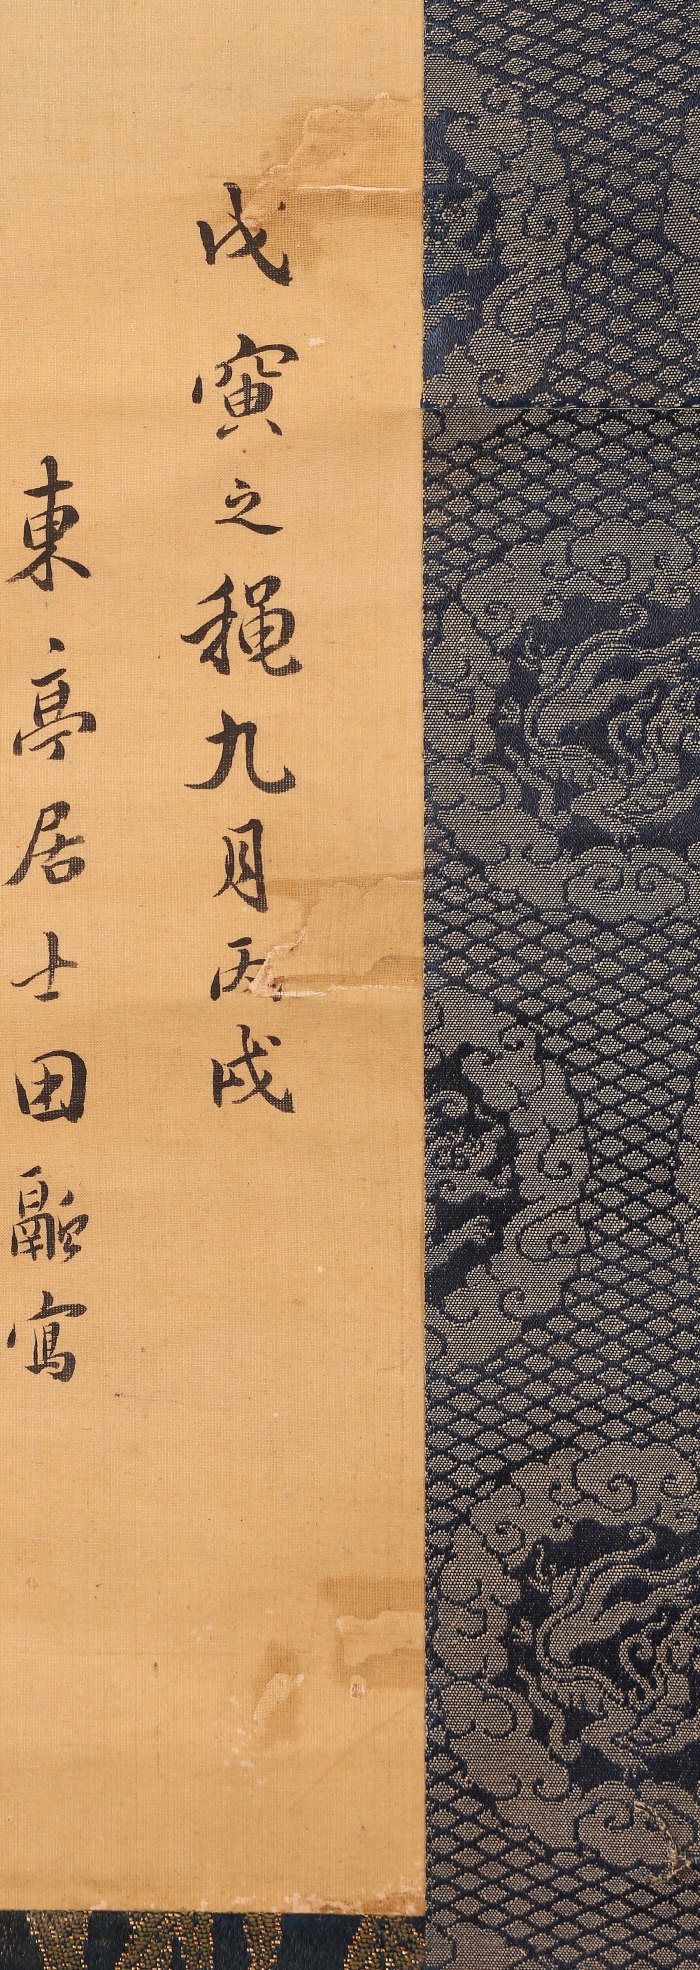 戊寅之穐九月丙戌
東亭居士田融寫